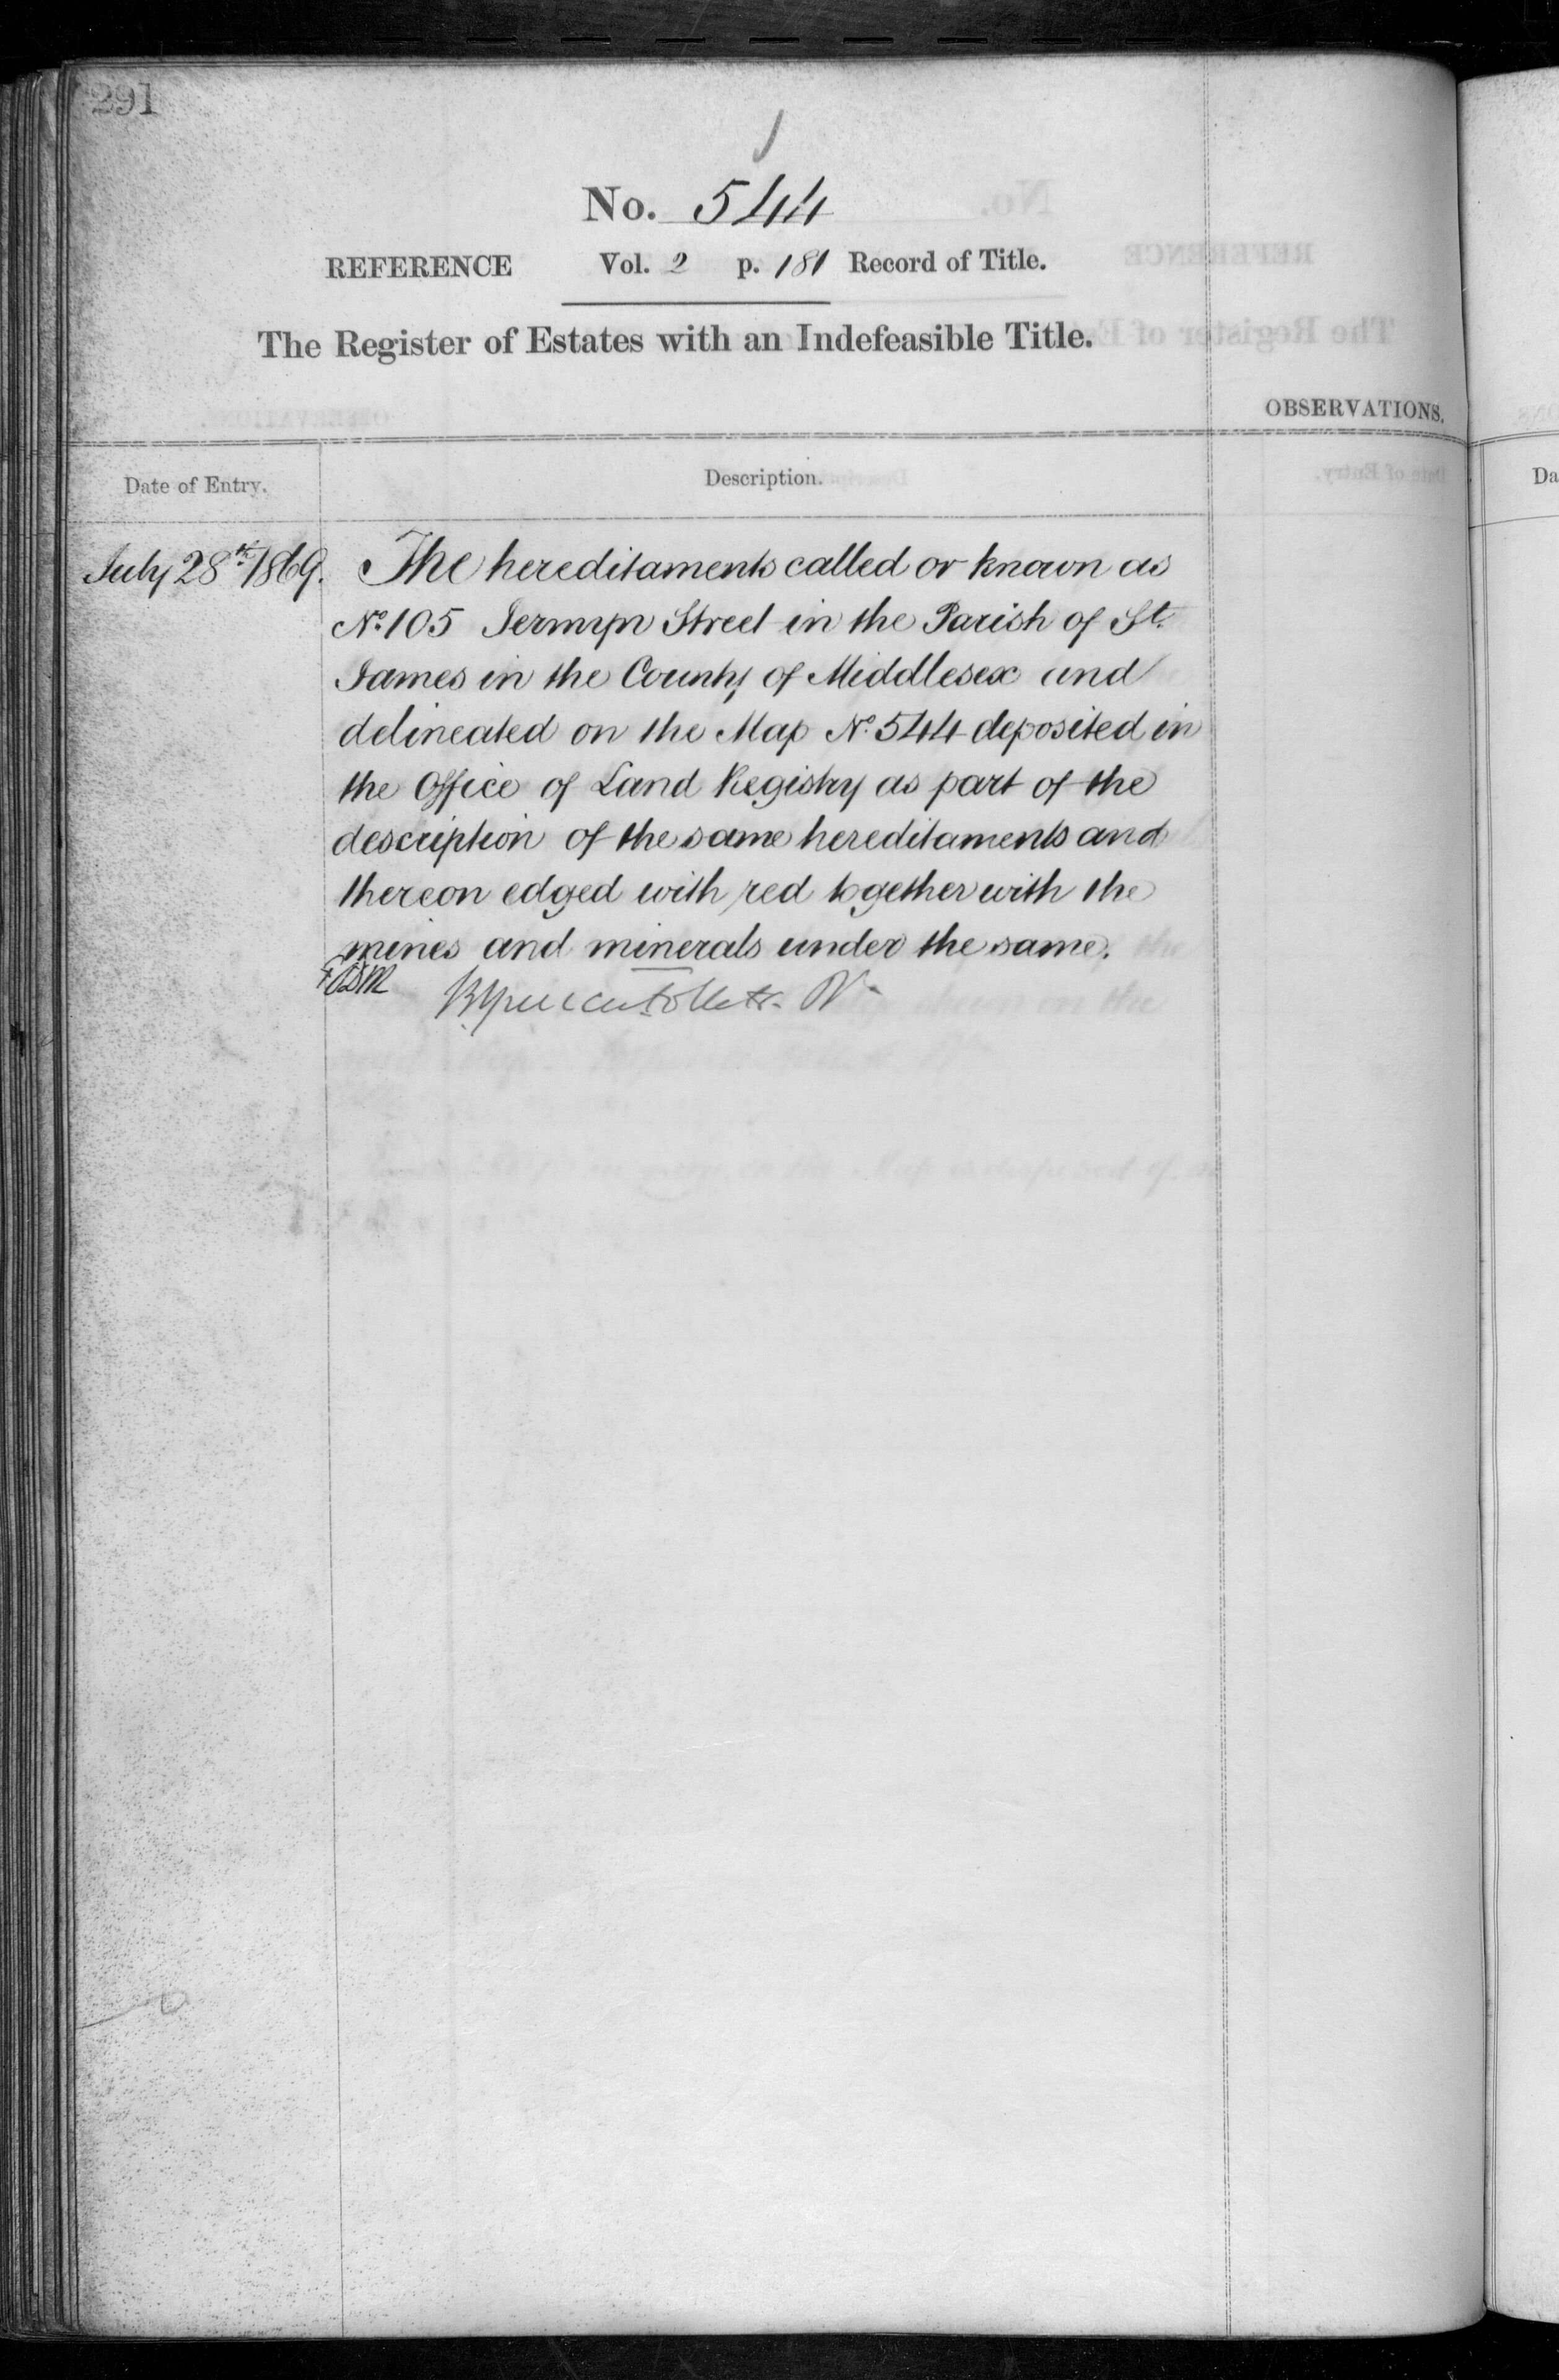 291
No. 544
REFERENCE Vol. 2 p. 181 Record of Title.
The Register of Estates with an Indefeasible Title.
OBSERVATIONS.
Date of Entry.
Description.
July 28th 1869.
The hereditaments called or known as
No. 105 Jermyn Street in the Parish of St.
James in the County of Middlesex and
delineated on the Map No. 544 deposited in
the Office of Land Registry as part of the
description of the same hereditaments and
thereon edged with red together with the
mines and minerals under the same.
Da